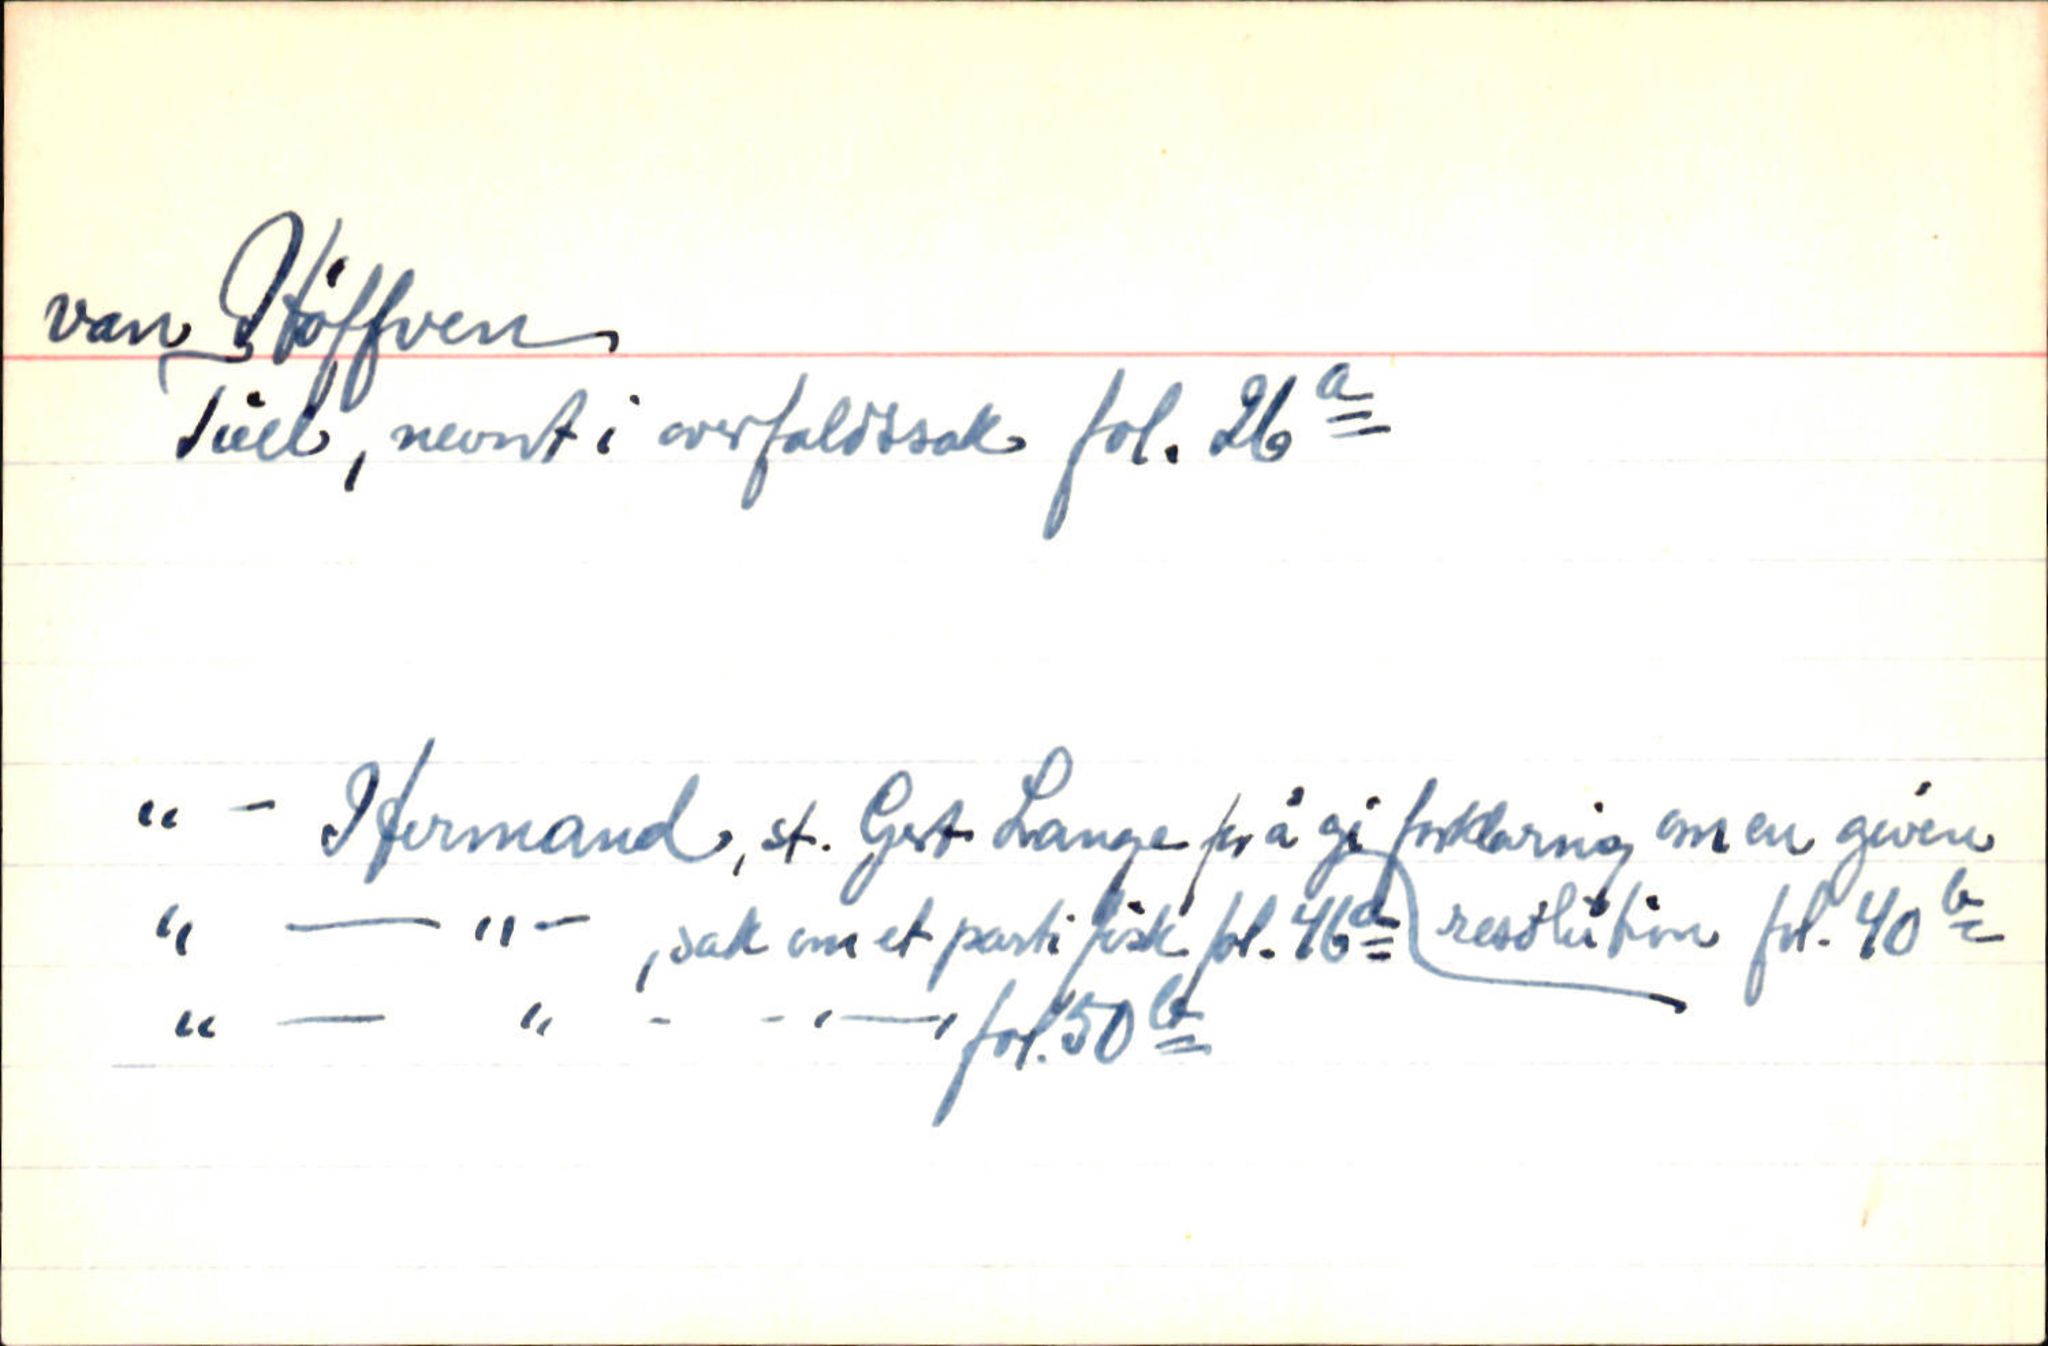 van Höffven
Tiell, nevnt i overfaldssak fol. 26a
" - Hermand, st. Gert Lange for å gi forklaring om en given
" — " - , sak om et parti fisk fol. 46a resolution fol. 40b
" — " - - " — " fol. 50b